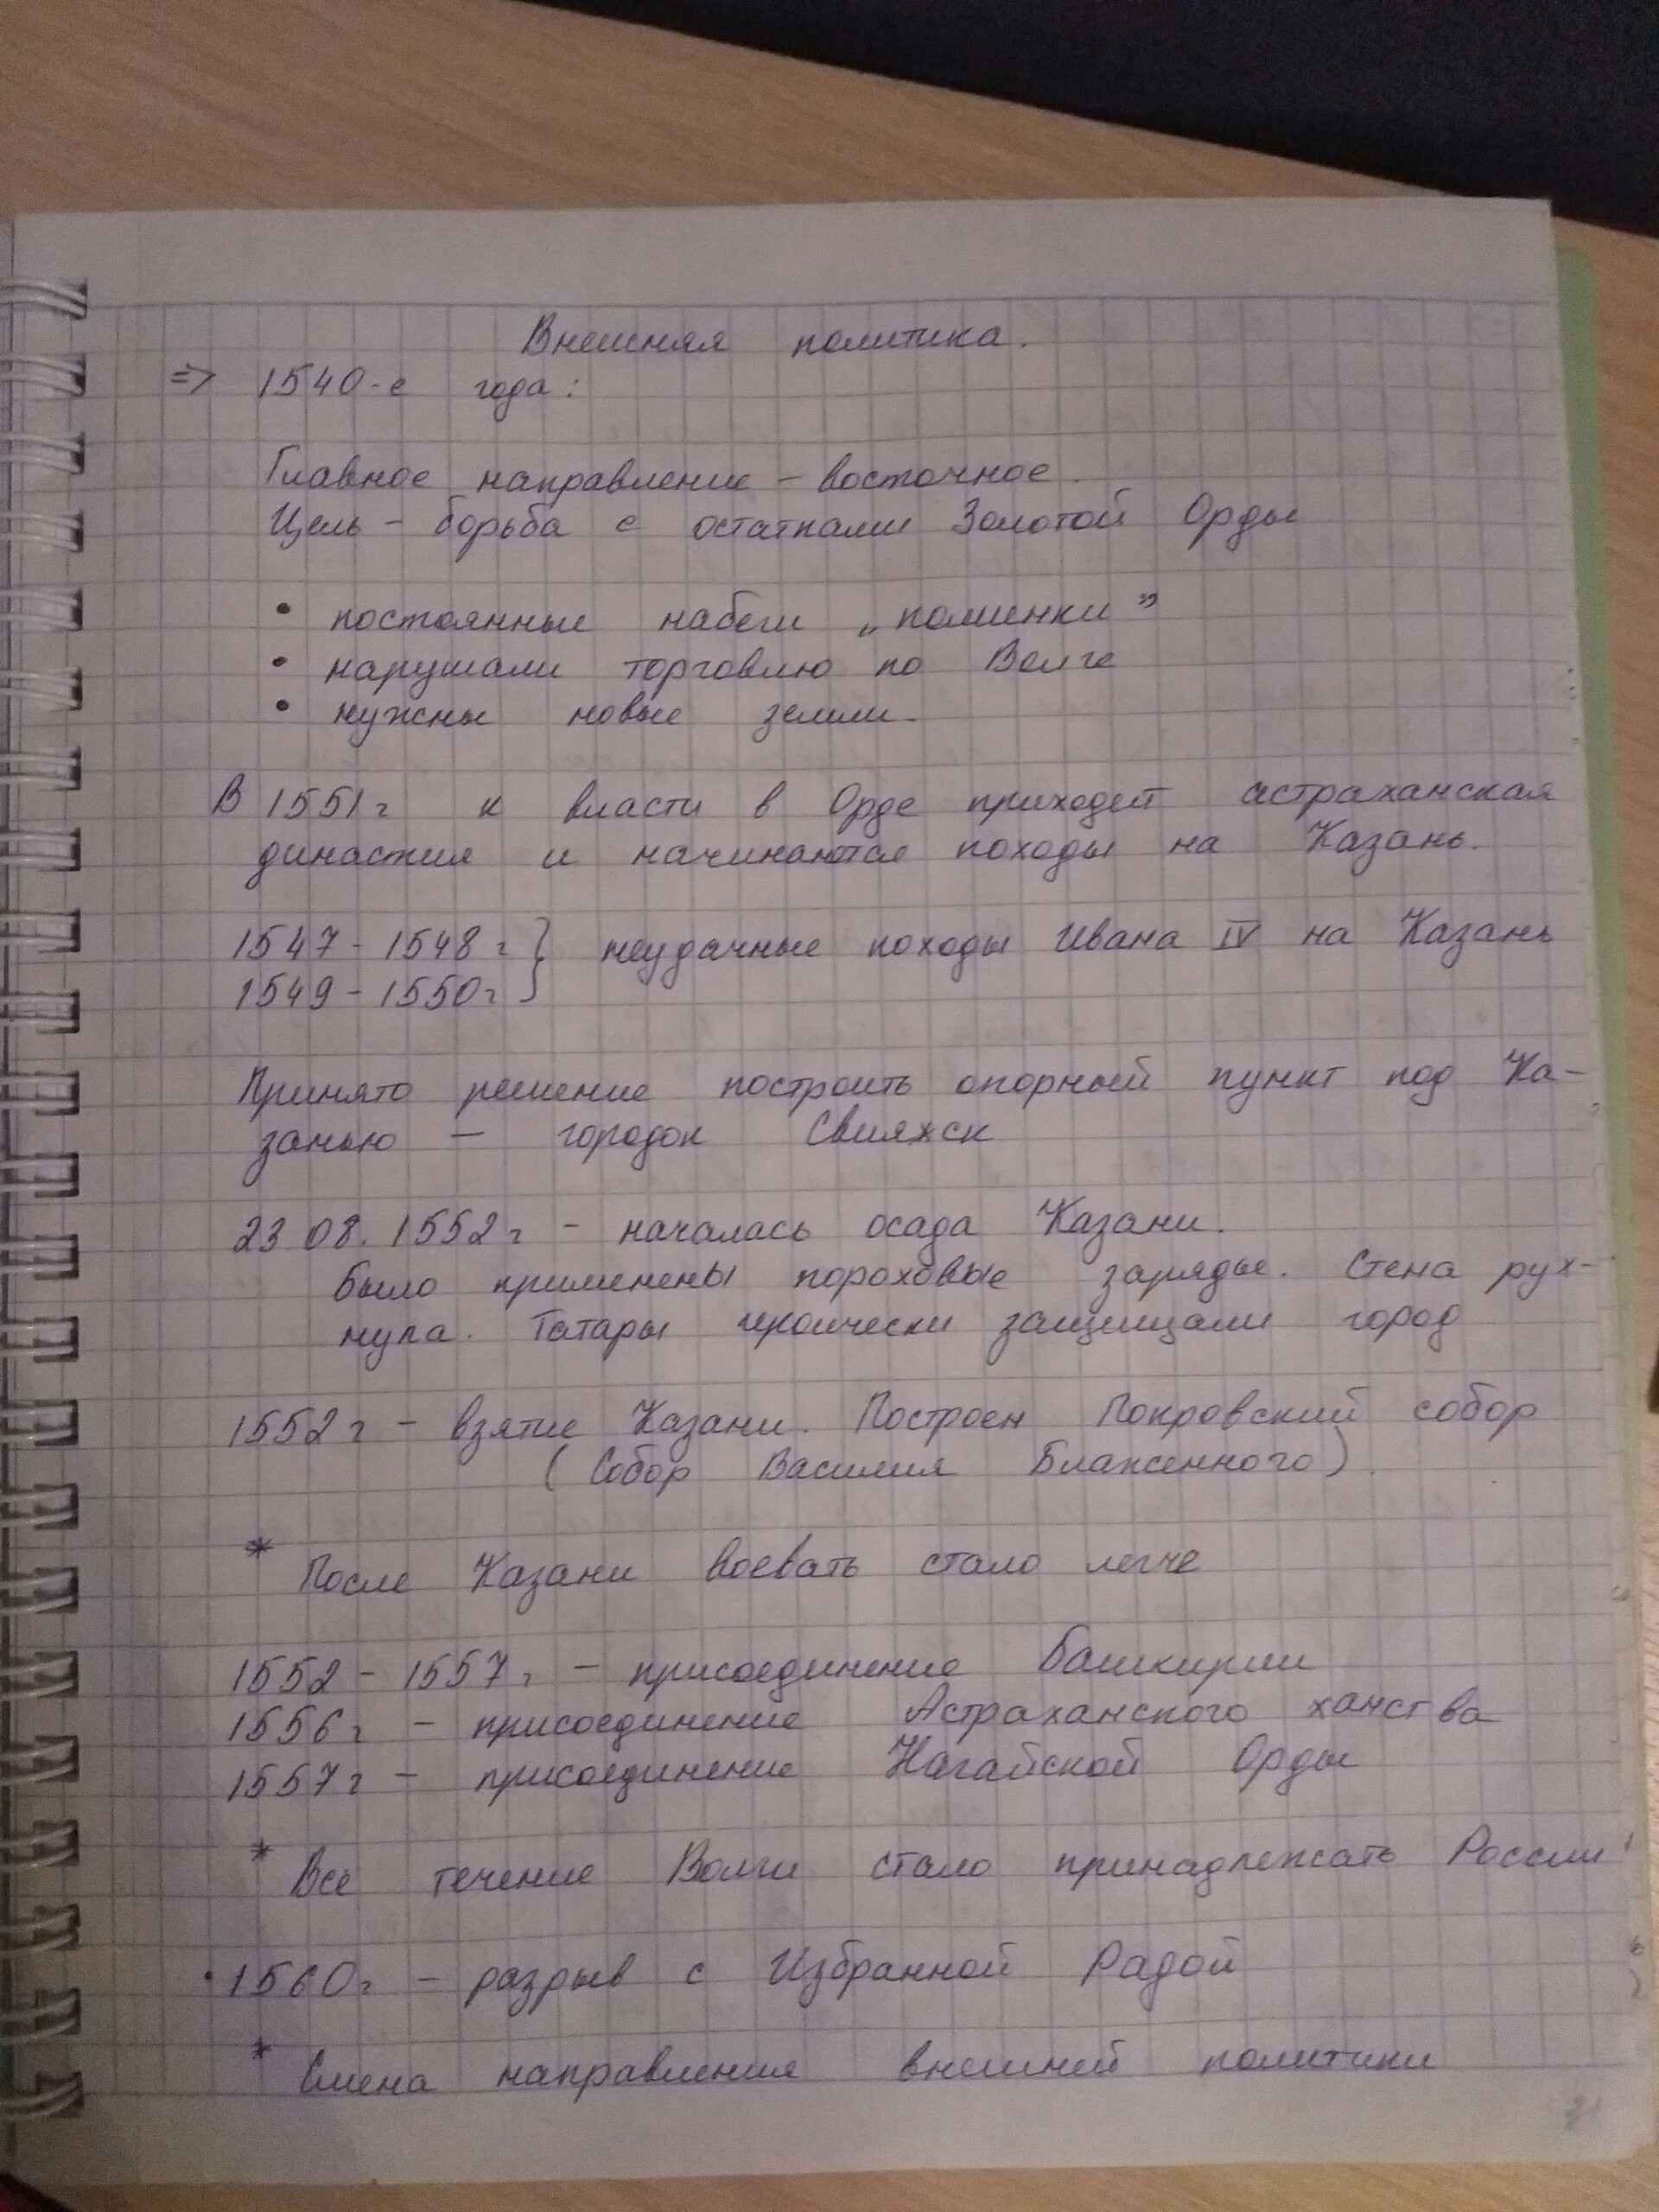 Внешняя политика.
=> 1540-е года:
Главное направление - восточное.
Цель - борьба с остатками Золотой Орды
• постоянные набеги „поминки”
• нарушали торговлю по Волге
• нужны новые земли.
В 1551г к власти в Орде приходит астраханская
династия и начинаются походы на Казань.
1547 - 1548 г } неудачные походы Ивана IV на Казань
1549 - 1550г
Принято решение построить опорный пункт под Ка-
занью - городок Свияжск
23 08. 1552г - началась осада Казани.
Было применены пороховые заряды. Стена рух-
нула. Татары героически защищали город
1552г - взятие Казани. Построен Покровский собор
(Собор Василия Блаженного).
* После Казани воевать стало легче
1552 - 1557г - присоединение Башкирии
1556г - присоединение Астраханского ханства
1557г - присоединение Нагайской Орды
* Все течение Волги стало принадлежать России!
• 1560г - разрыв с Избранной Радой
* Смена направления внешней политики